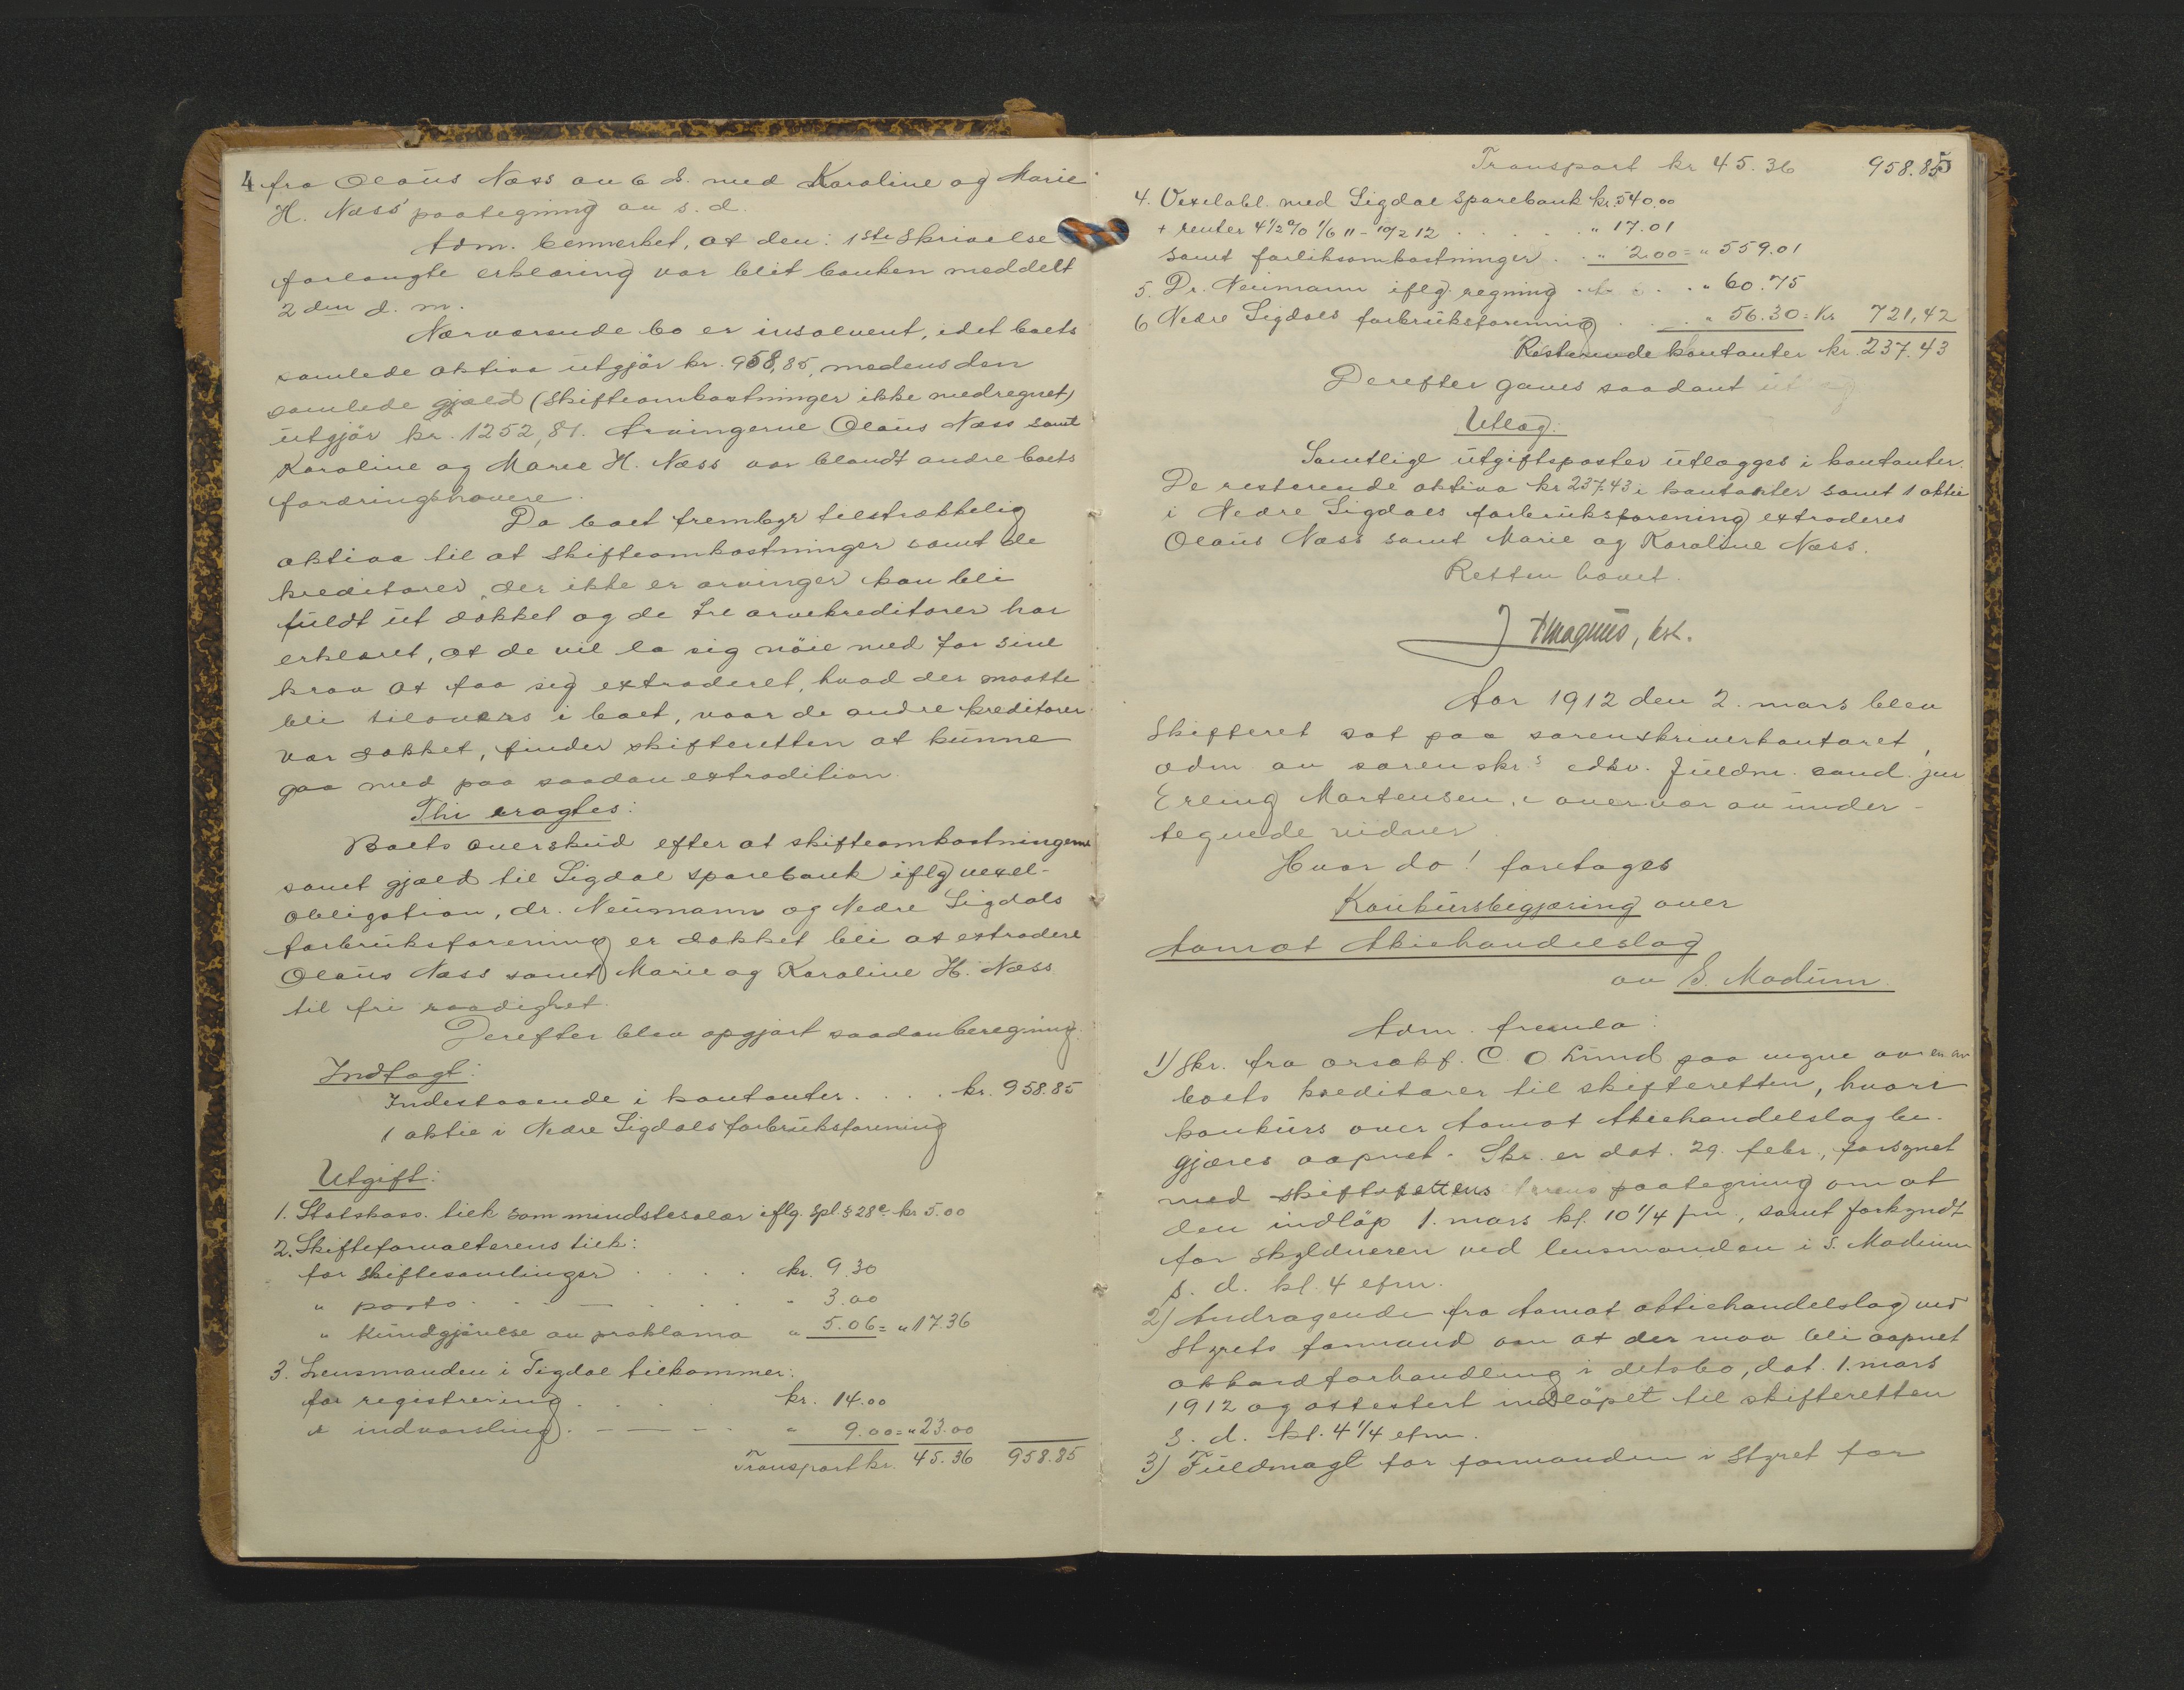 4 fra Olaüs Næss av 6 ds. med Karoline og Marie
H. Næss' paategning av s.d.
Adm. bemerket, at den i 1ste skrivelse
forlangte erklæring var blit banken meddelt
2den d. m.
Nærværende bo er insolvent, idet boets
samlede aktiva utgjör kr. 958,85, medens den
samlede gjæld (skifteomkostninger ikke medregnet)
utgjör kr. 1252,81. Arvingerne Olaüs Næss samt
Karoline og Marie H. Næss var blandt andre boets
fordringshavere.
Da boet frembyr tilstrækkelig
aktiva til at skifteomkostninger samt de
kreditorer, der ikke er arvinger kan bli
fuldt ut dækket og de tre arvekreditorer har
erklæret, at de vil la sig nöie med for sine
krav at faa sig extraderet, hvad der maatte
bli tilovers i boet, naar de andre kreditorer
var dækket, finder skifteretten at kunne
gaa med paa saadan extradition.
Thi eragtes:
Boets overskud efter at skifteomkostningerne
samt gjæld til Sigdal sparebank iflg vexel-
obligation, dr. Neumann og Nedre Sigdals
forbruksforening er dækket bli at extradere
Olaüs Næss samt Marie og Karoline H. Næss
til fri raadighet.
Derefter blev opgjort saadan beregning.
Indtægt:
Indestaaende i kontanter . . . . kr. 958.85
1 aktie i Nedre Sigdals forbruksforening
Utgift:
1. Statskass. tilk som mindstesalær iflg. Spl. § 28e. kr 5.00
2. Skifteforvalterens tilk:
for skiftesamlinger . . . . kr. 9.30
" porto . . — . . . " 3.00
" kundgjörelse av proklama " 5.06 = " 17.36
3. Lensmanden i Sigdal tilkommer:
for registrering . . . . kr. 14.00
" indvarsling . — — - - " 9.00 = " 23.00
Transport kr. 45.36 958.85
Transport kr 45.36 958.85
5
4. Vexelobl. med Sigdal sparebank kr. 540.00
+ renter 4 1/2 % 1/6 11 - 10/2 12 . . . . . " 17.01
samt forliksomkostninger . . " 2.00 = " 559.01
5. Dr. Neumann iflg. regning . . . . " 60.75
6 Nedre Sigdals forbruksforening . . . " 56.30 = Kr. 721,42
Resterende kontanter kr. 237.43
Derefter gaves saadant
Utlæg:
Samtlige utgiftsposter utlægges i kontanter.
De resterende aktiva kr 237.43 i kontanter samt 1 aktie
i Nedre Sigdals forbruksforening extraderes
Olaüs Næss samt Marie og Karoline Næss.
Retten hævet.
J Magnus, kst.
Aar 1912 den 2. mars blev
Skifteret sat paa sorenskriverkontoret,
adm av sorenskr.s edsv. fuldm. cand. jur
Erling Mortensen, i overvær av under-
tegnede vidner.
Hvor da! foretages
Konkursbegjæring over
Aamot Akiehandelslag
av S. Modum.
Adm. fremla:
1) Skr. fra orsakf. C. O Lund paa vegne av en av
boets kreditorer til skifteretten, hvori
konkurs over Aamot Akiehandelslag be-
gjæres aapnet. Skr. er dat. 29. febr., forsynet
med skifterettens paategning om at
den indlöp 1. mars kl. 10 1/4 fm, samt forkyndt
for skyldneren ved lensmanden i S. Modum
s. d. kl. 4 efm.
2) Andragende fra Aamot aktiehandelslag ved
Styrets formand om at der maa bli aapnet
akkordforhandling i dets bo, dat. 1. mars
1912 og attestert indlöpet til skifteretten
s. d. kl. 4 1/4 efm.
3) Fuldmagt for formanden i Styret for